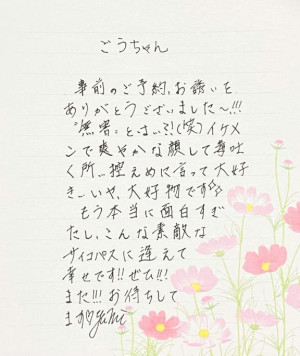 ごうちゃん
事前のご予約、お誘いを
ありがとうございました〜!!!
"無署"とは…?!(笑)イケメ
ンで爽やかな顔して毒吐
く所…控えめに言って大好
き…いや、大好物です
もう本当に面白すぎ
たし、こんな素敵な
サイコパスに逢えて
幸せです!!ぜひ!!
また!!!お待ちして
ます